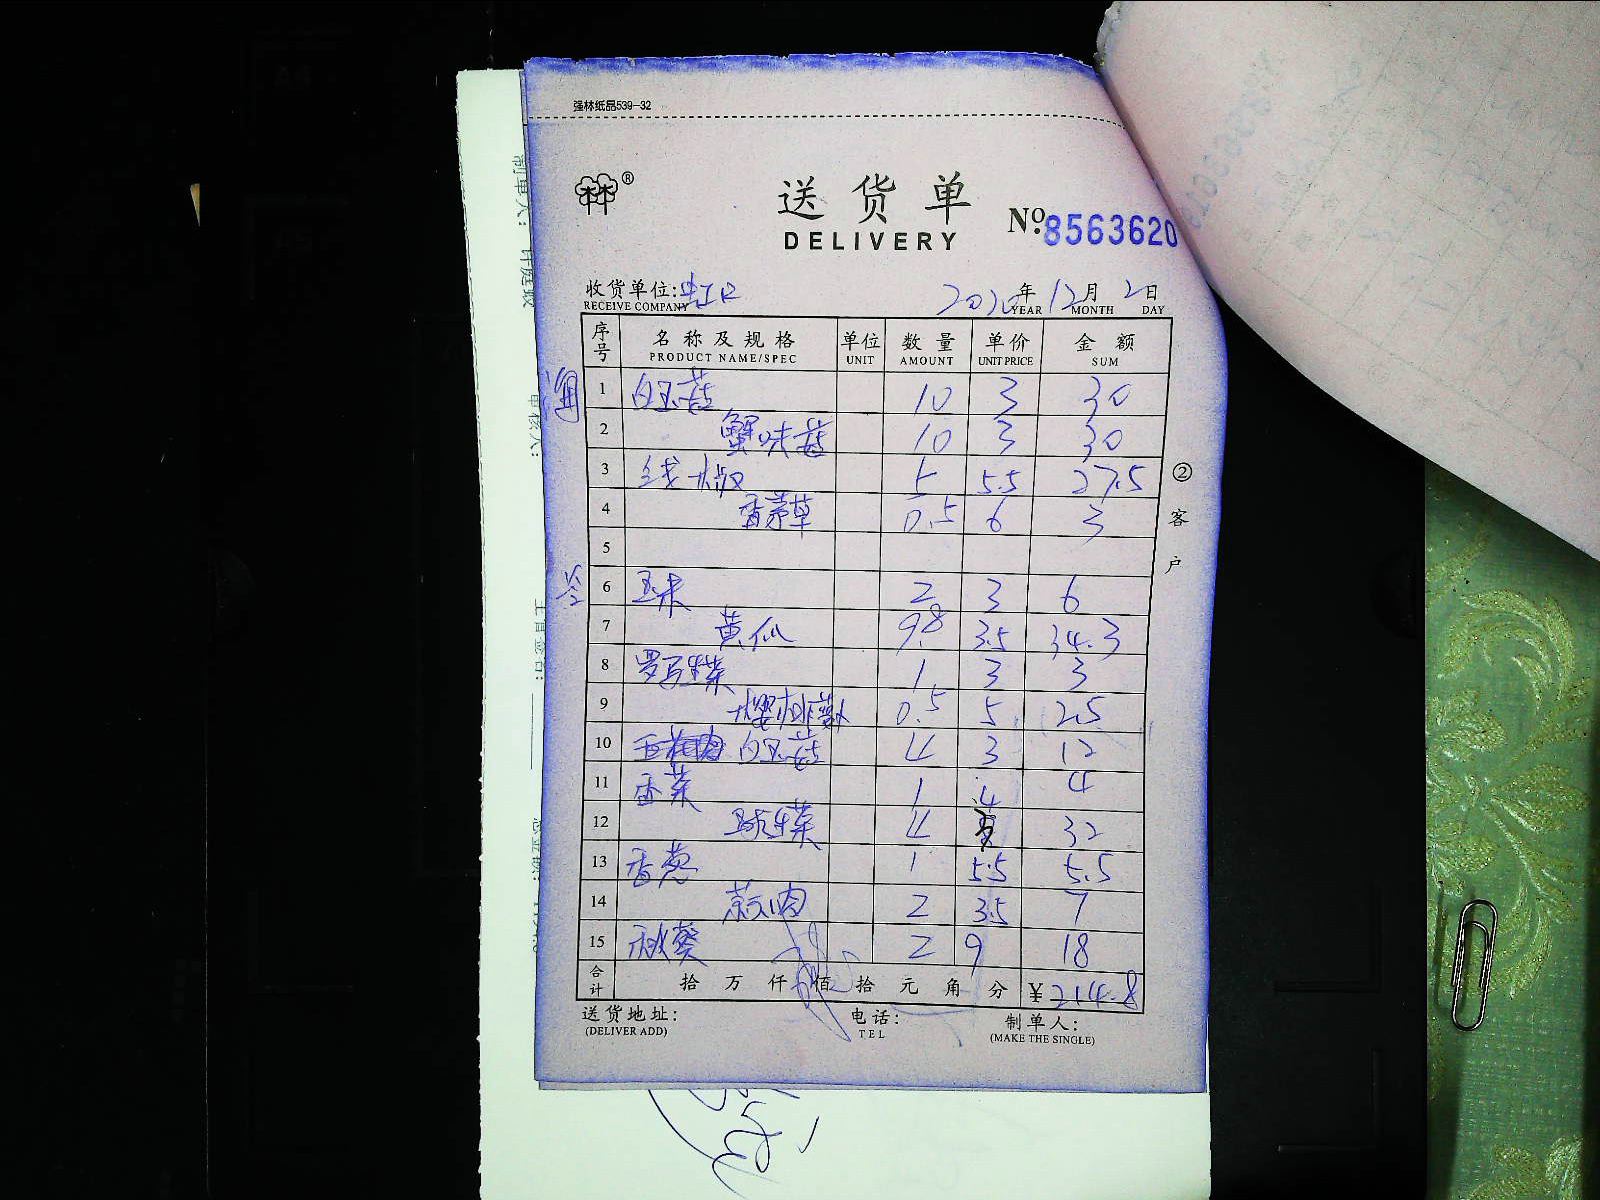 强林纸品539-32
送货单
DELIVERY
№:8563620
收货单位:虹口 2020年12月2日
RECEIVE COMPANY YEAR MONTH DAY
序号 名称及规格 单位 数量 单价 金额
PRODUCT NAME/SPEC UNIT AMOUNT UNIT PRICE SUM
1 白玉菇 10 3 30
2 蟹味菇 10 3 30
3 线椒 5 5.5 27.5
4 香茅草 0.5 6 3
5
6 玉米 2 3 6
7 黄瓜 9.8 3.5 34.3
8 罗马生菜 1 3 3
9 樱桃萝卜 0.5 5 2.5
10 白玉菇 4 3 12
11 香菜 1 4 4
12 球生菜 4 32
13 香葱 1 5.5 5.5
14 2 3.5 7
15 秋葵 2 9 18
合计 拾 万 仟 佰 拾 元 角 分 ¥214.8
送货地址: 电话: 制单人:
(DELIVER ADD) TEL (MAKE THE SINGLE)
②客户
制单人:
审核人:
主管签名: